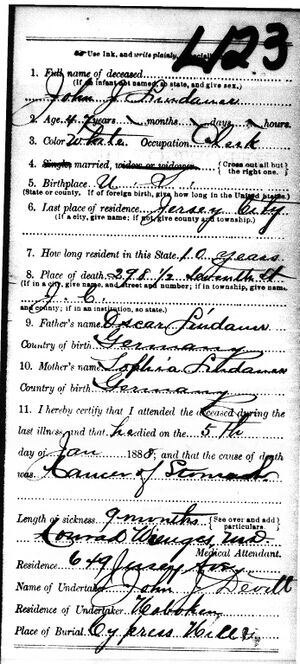 L123
Use Ink, and write plainly,
1. Full name of deceased
(If an infant not named, so state, and give sex.)
John J. Lindauer
2. Age, 42 years — months, — days, — hours.
3. Color White Occupation, Clerk
4. Single, married, widow or widower. {Cross out all but the right one.}
5. Birthplace U. S.
(State or county. If of foreign birth, give how long in the United States.)
6. Last place of residence Jersey City
(If a city, give name; if not, give county and township.)
7. How long resident in this State, 10 years
8. Place of death, 298 1/2 Seventh St
(If in a city, give name, and street and number; if in township, give name
J. C.
and county; if in an institution, so state.)
9. Father's name Oscar Lindauer
Country of birth Germany
10. Mother's name, Sophia Lindauer
Country of birth Germany
11. I hereby certify that I attended the deceased during the
last illness, and that he died on the 5th
day of Jan 1888, and that the cause of death
was Cancer of Stomach
Length of sickness 9 months {See over and add particulars.}
Conrad Wenges, M.D.
Medical Attendant.
Residence, 649 Jersey Ave
Name of Undertaker John J Devitt
Residence of Undertaker, Hoboken
Place of Burial, Cypress Hills